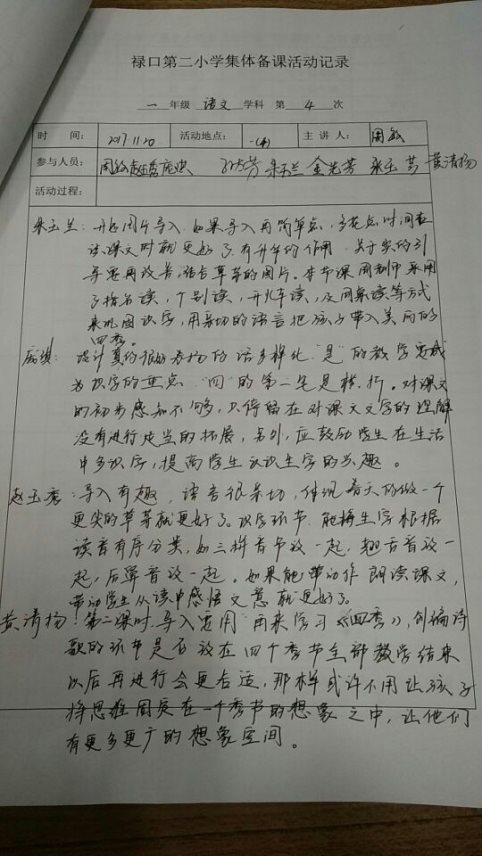 禄口第二小学集体备课活动记录
一 年级 语文 学科 第 4 次
时 间： 2017.11.20 活动地点： 一(4) 主 讲 人： 周敏
参与人员： 周敏 赵玉香 庞琪 孙大芳 朱玉兰 金光芳 朱玉芳 黄清扬
活动过程：
朱玉兰：开始图片导入，如果导入再简单点，多花点时间在
读课文时就更好了，有升华的作用。关于尖的引
导要用改善，结合草芽的图片。本节课周敏师采用
了指名读，个别读，开火车读，及同桌读等方式
来巩固识字，用亲切的语言把孩子带入美丽的
四季。
庞琪：设计真的很好，表扬的话多样化，“是”的教学变成
为识字的重点，“四”的第二笔是横折。对课文
的初步感知不够，只停留在对课文文字的理解
没有进行适当的拓展，另外，应鼓励学生在生活
中多识字，提高学生认识生字的兴趣。
赵玉香：导入有趣，语言很亲切，体现春天的做一个
更尖的草芽就更好了。识字环节，能将生字根据
读音有序分类，如三拼音节放一起，翘舌音放一
起，后鼻音放一起。如果能带动作朗读课文，
带动学生从读中感悟文意就更好了。
黄清扬：第二课时，导入运用“再来学习《四季》，创编诗
歌的环节是否放在四个季节全部教学结束
以后再进行会更合适，那样或许不用让孩子
将思维局定在一个季节的想象之中，让他们
有更多更广的想象空间。